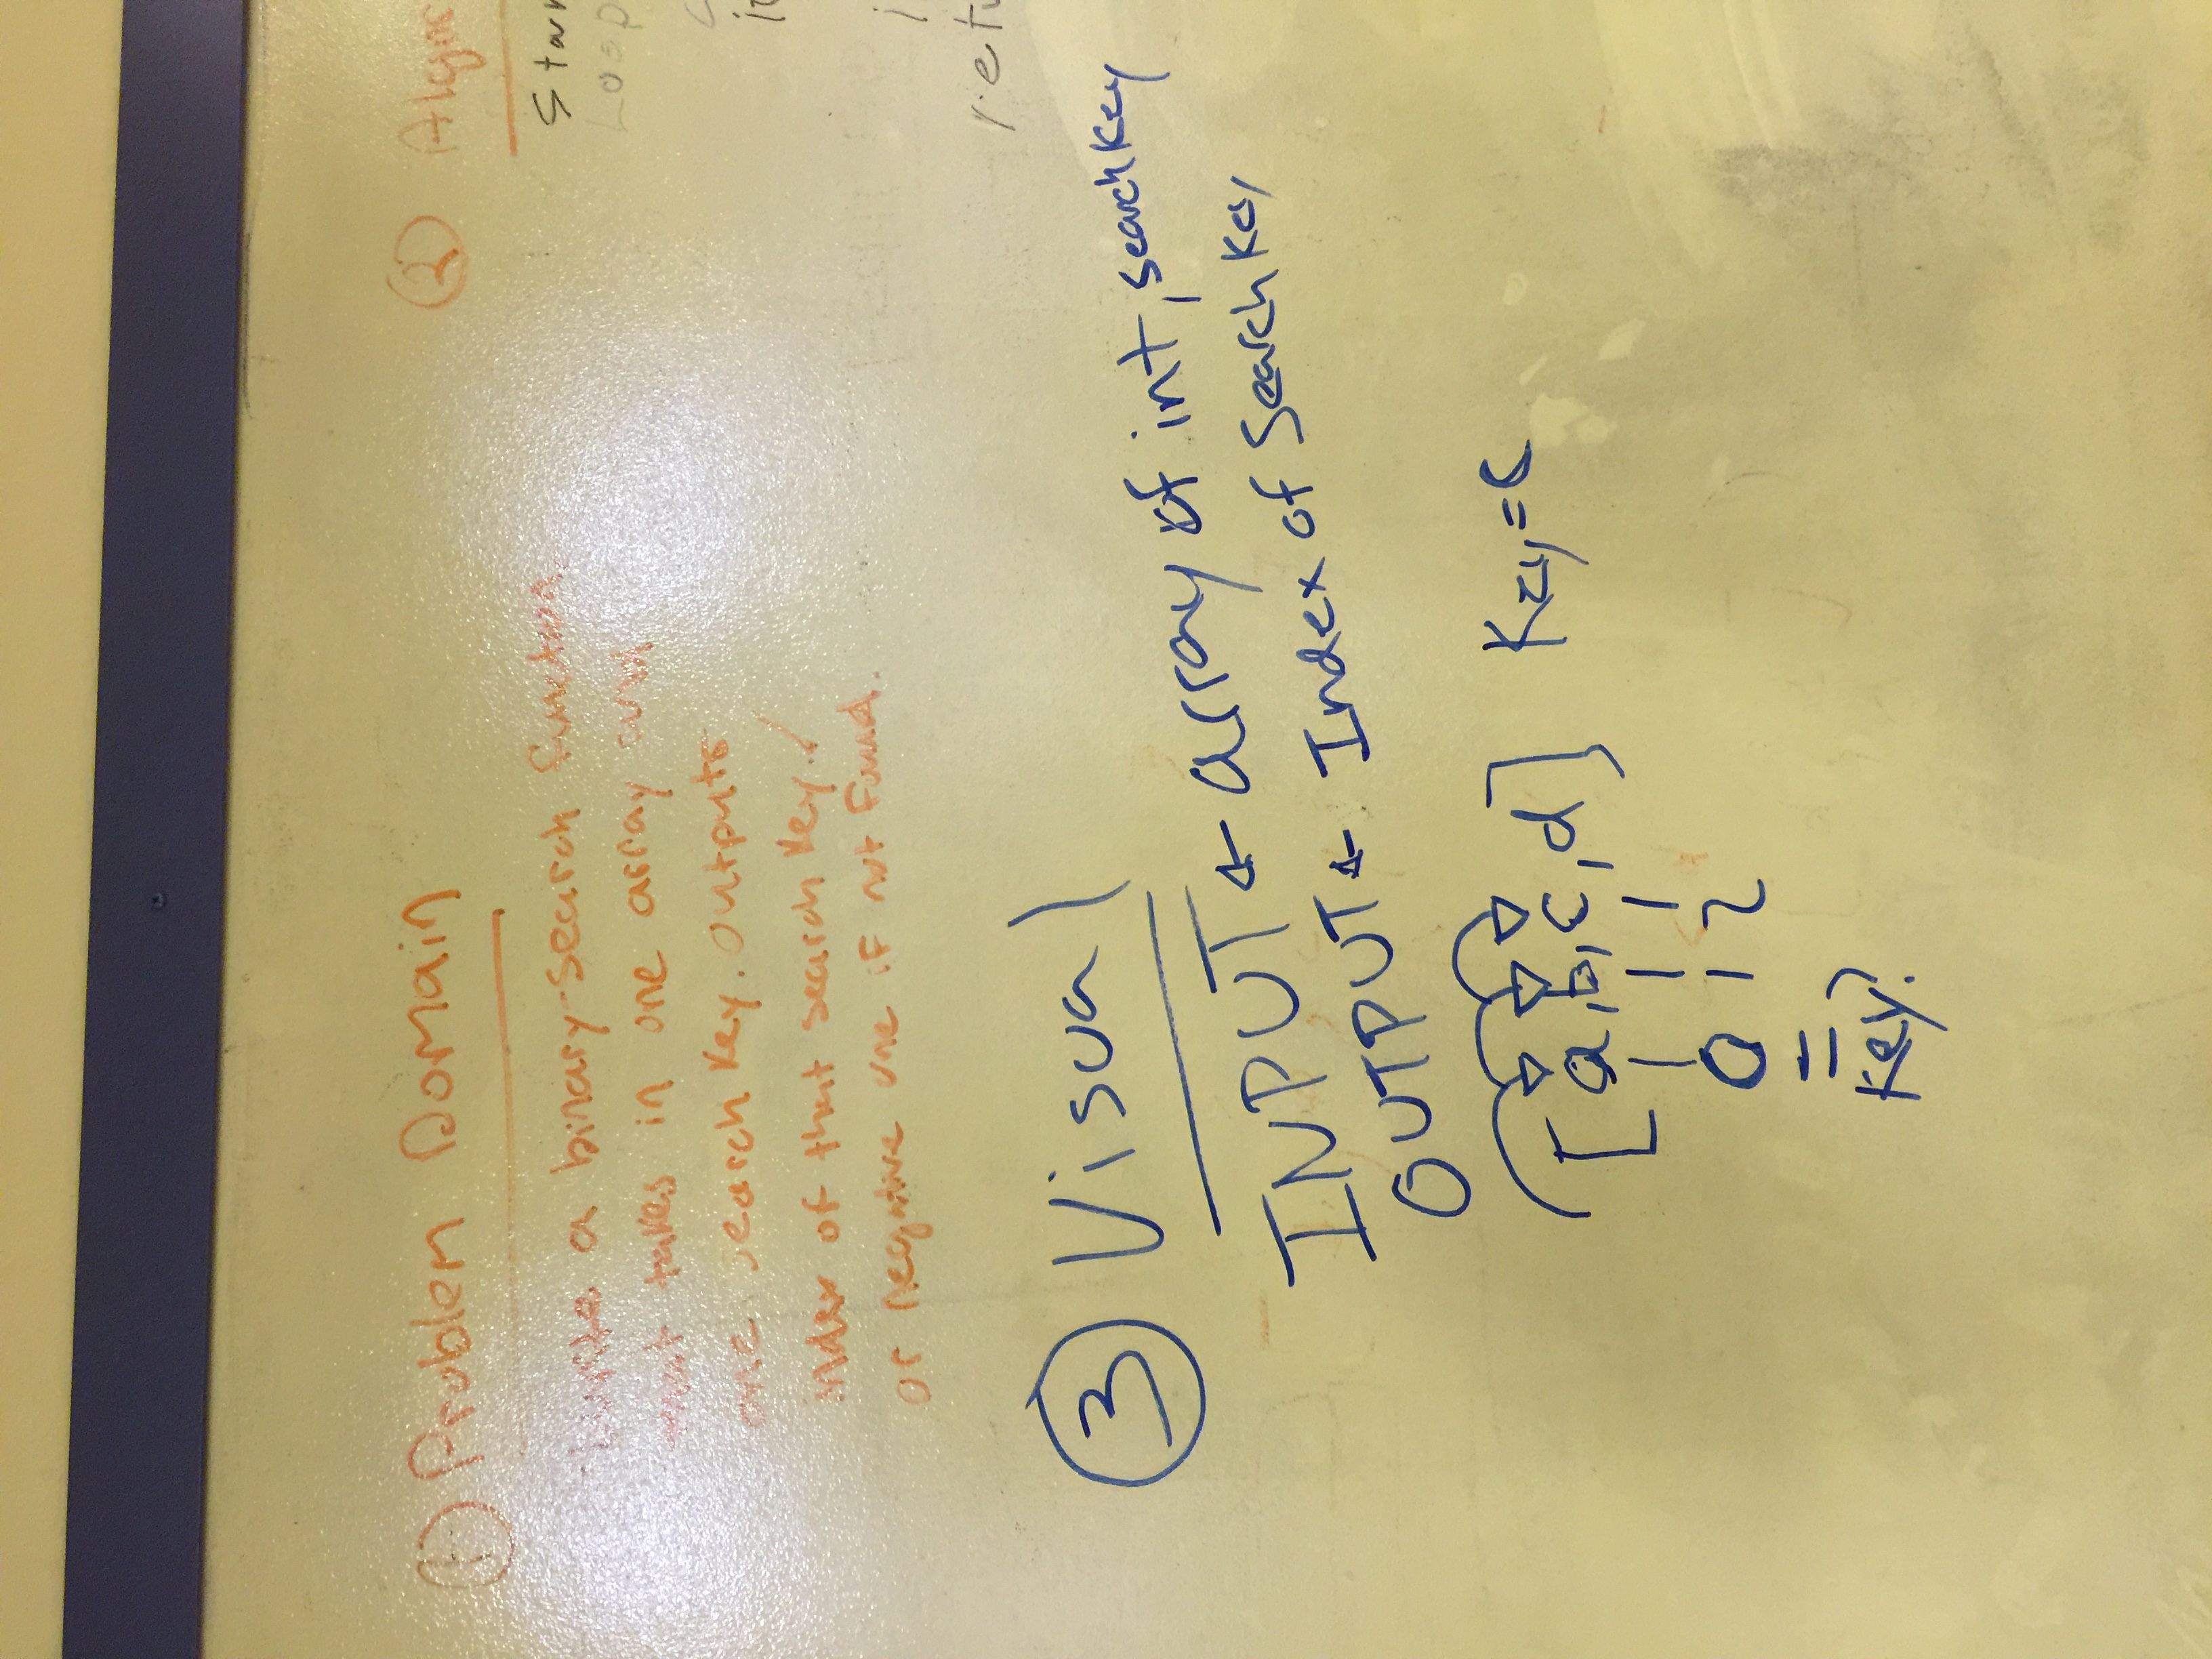 ① Problem Domain
Write a binary-search function
that takes in one array and
one search key. outputs
index of that search key.
or negative one if not found.
② Algor
Star
Loop
i
retu
③ Visual
INPUT ← array of int, searchKey
OUTPUT ← Index of Search Key
[a, b, c, d] Key=c
0 1 2
=
Key?